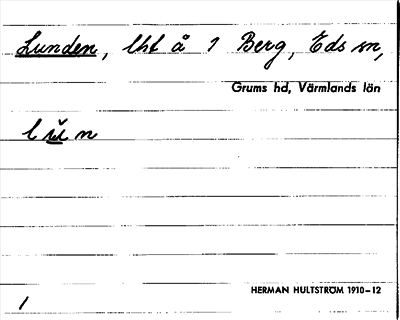 Lunden, lht å 1 Berg, Eds sn,
Grums hd, Värmlands län
l ŭ n
HERMAN HULTSTRÖM 1910-12
1